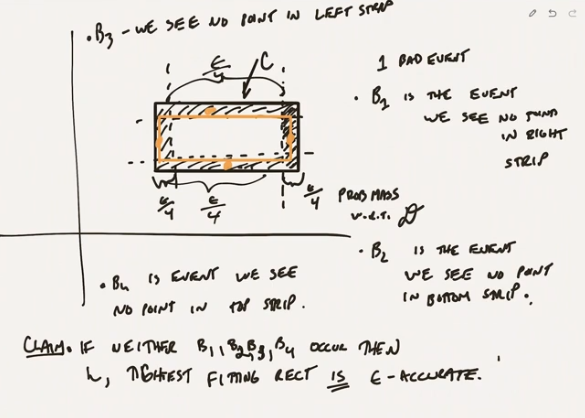 • B3 - WE SEE NO POINT IN LEFT STRIP
ε/4
C
1 BAD EVENT
• B1 IS THE EVENT
WE SEE NO POINT
IN RIGHT
STRIP
ε/4
ε/4
ε/4
PROB MASS
W.R.T. D
• B2 IS THE EVENT
WE SEE NO POINT
IN BOTTOM STRIP.
• B4 IS EVENT WE SEE
NO POINT IN TOP STRIP.
CLAIM. IF NEITHER B1, B2, B3, B4 OCCUR THEN
h, TIGHTEST FITTING RECT IS ε-ACCURATE.